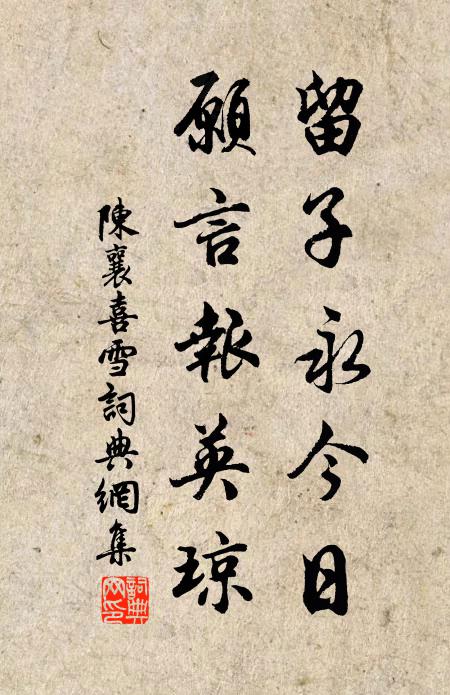 留子永今日
願言報英琼
陳襄喜雪詞典網集
詞典网印